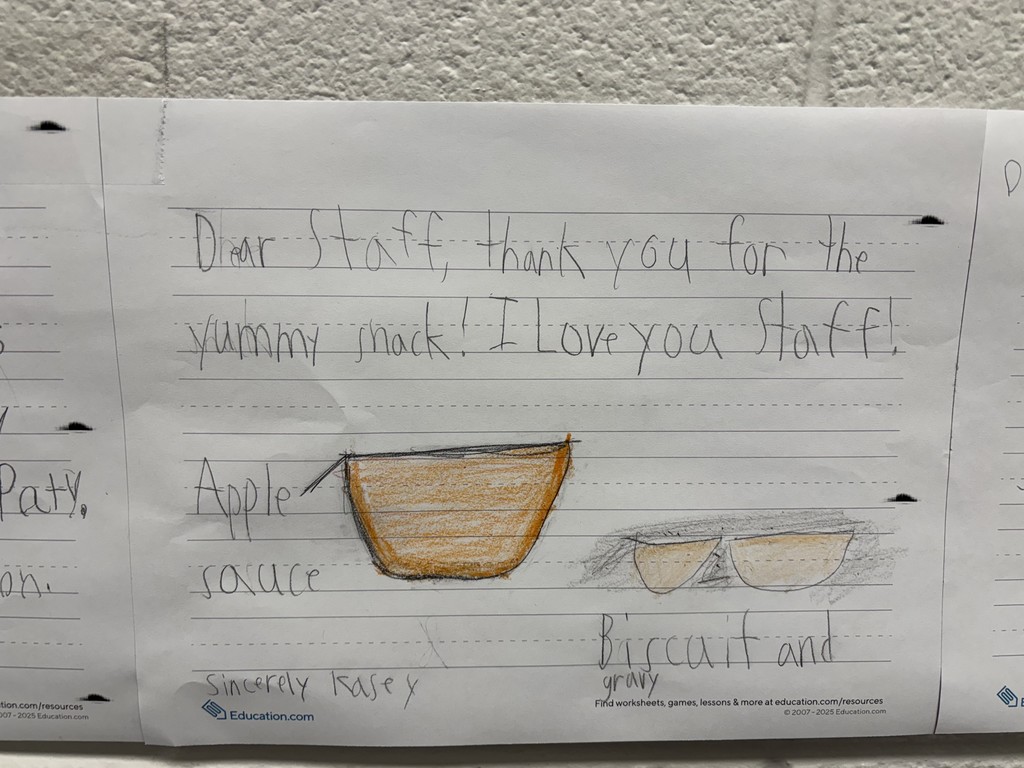 Dear Staff, thank you for the
yummy snack! I Love you Staff!
Apple
sauce
Biscuit and
gravy
sincerely Kasey
Education.com
Find worksheets, games, lessons & more at education.com/resources
© 2007 - 2025 Education.com
Paty.
on.
tion.com/resources
007 - 2025 Education.com
D